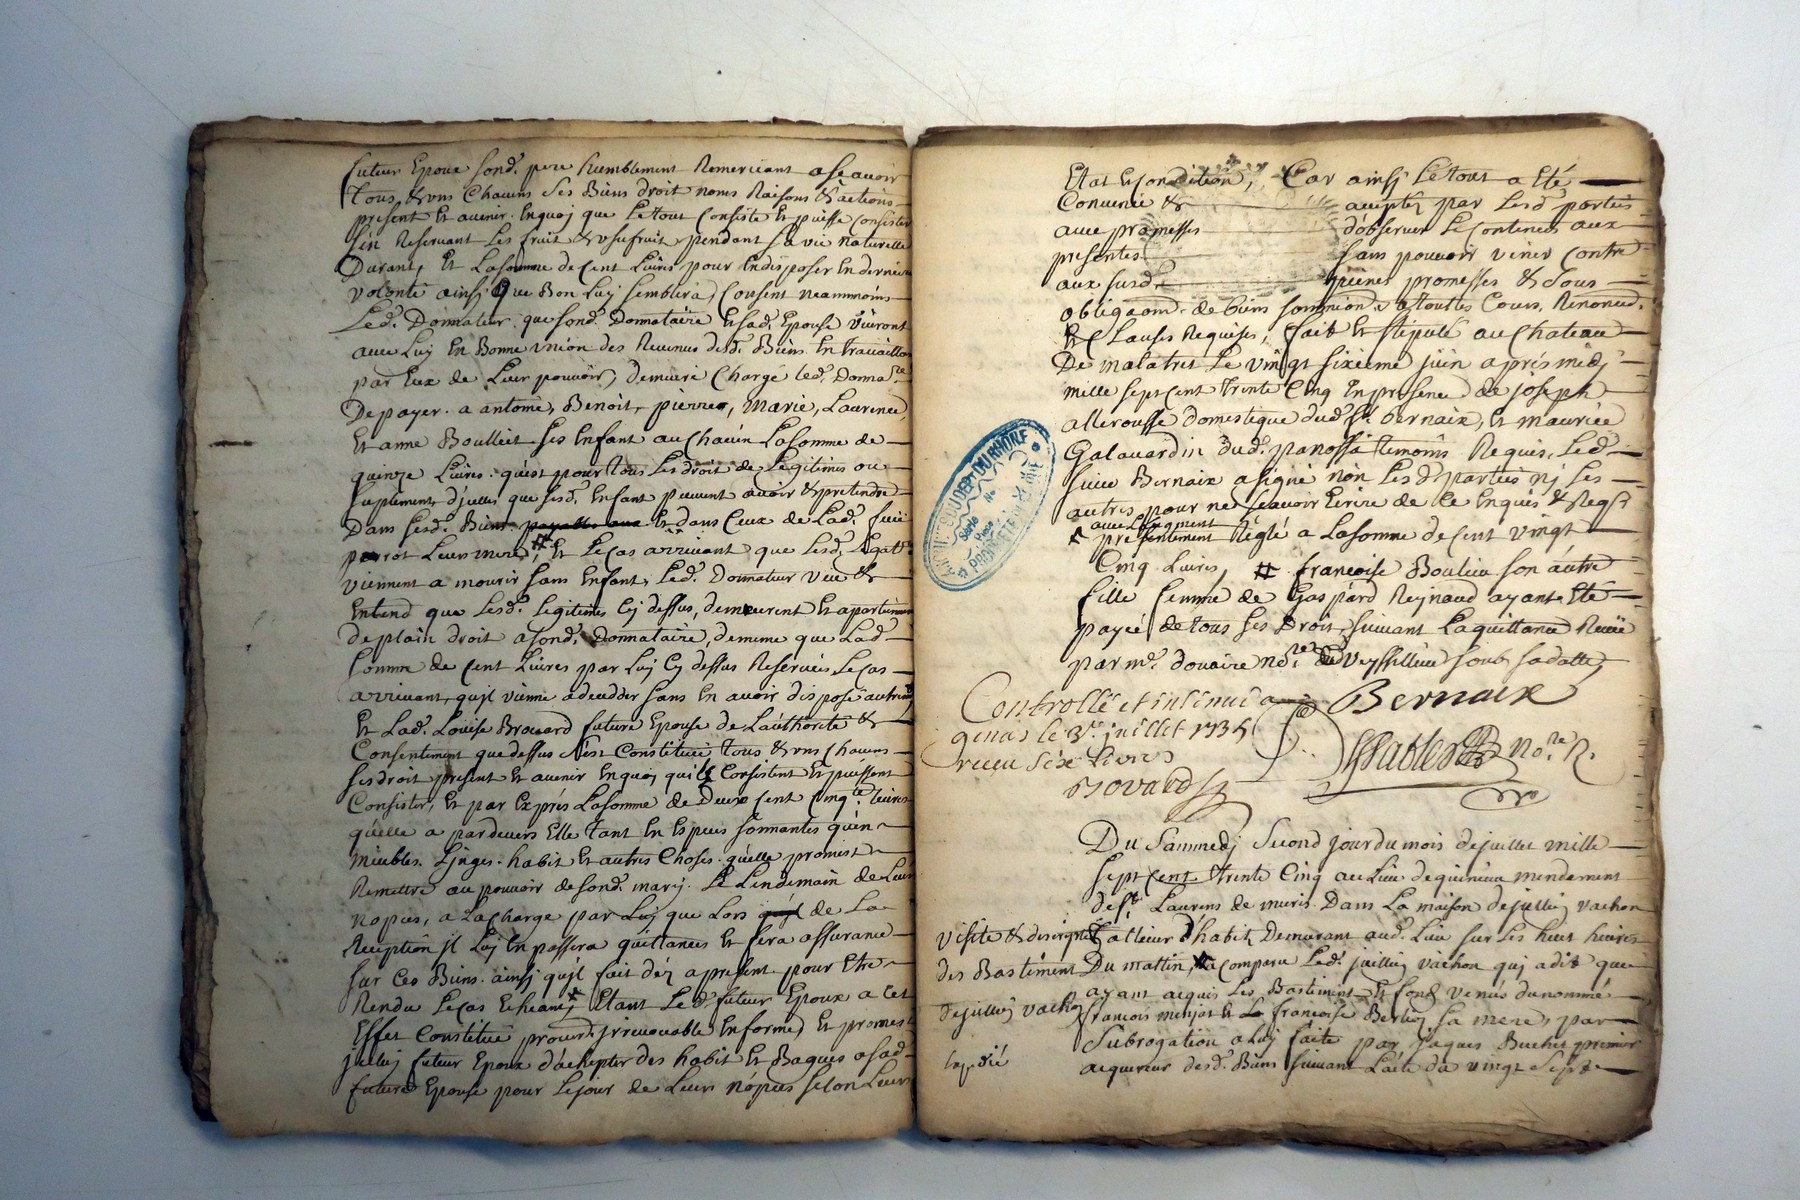 futeur Epoux sond. pere humblement Remerciant a scavoir
Tous & uns Chacuns ses Biens droit noms Raisons & actions
present et avenir. Enquoj que le tout Consiste et puisse Consister
s'en Reservant les fruit & usufruit, pendant sa vie naturelle
Durant, et La somme de Cent Livres pour En disposer En derniere
volonté ainsj que Bon luy semblera, Consent neammoins
Led. Donnateur que sond. Donnataire et sad. Epouse vivront
avec Luy En Bonne union des Revenus desd. Biens En travaillant
par Eux de Leur pouvoir, demeure Chargé led. Donna.re
De payer a antoine, Benoit, pierre, marie, Laurence,
Et anne Boullieit ses Enfant au Chacun La somme de
quinze Livres. qu'est pour tous les droit de Legitimes ou
suplement d'jcelles que lesd. Enfant peuvent avoir & pretendre
Dans lesd. Biens payables aux et dans Ceux de Lad. feüe
perrot Leur mere, # et le Cas arrivant que lesd. Legat.
viennent a mourir sans Enfant, led. Donnateur veu &
Entend que lesd. legitimes Cy dessus, demeurent et apartiennent
de plain droit a sond. Donnataire, de meme que Lad.
somme de Cent Livres par luy Cy dessus Reservée, le Cas
arrivant, qu'jl vienne a decedder sans En avoir disposé autrem.
Et Lad. Louise Brossard future Epouse de L'authorité &
Consentement que dessus s'est Constituée tous & uns Chacuns
ses droit present et avenir Enquoy qu'ils Consistent et puissent
Consister, et par Exprés La somme de Deux Cent Cinq.te Livres
qu'elle a pardevers Elle tant En Especes sonnantes qu'en
meubles. Linges. habit et autres Choses. qu'elle promest
Remettre au pouvoir de sond. marj. le Lendemain de leur
nopces, a la Charge par luy que Lors de La
Reception jl luy En passera quittances et fera assurance
sur Ces Biens. ainsj qu'jl fait déz a present pour Etre
Rendu le Cas Echeant, Etant Led. futeur Epoux a Cet
Effet Constitué procur. jrrevocable En forme, et promest
jceluy futeur Epoux d'achepter des habit et Bagues a sad.
future Epouse pour le jour de Leurs nopces selon Leurs
Etat et Condition, Car ainsj le tout a Eté
Convenue & acceptez par lesd. parties
avec promesses d'observer le Contenus aux
presentes sans pouvoir venir Contre
aux susd. peines promesses & sous
obligaom. de biens soumion a toutes Cours, Renonci.
et Clauses Requises, fait et stipulé au Chateau
De malatret le vingt sixieme juin aprés midj
mille sept Cent trente Cinq En presence de joseph
allerousse domestique dud. sr. Bernaix, et maurice
Galavardin dud. panossa temoins Requis, led.
sieur Bernaix a signé non les d. parties nj les
autres pour ne scavoir Ecrire de Ce Enquis & Reqs
avec L'augment
presentement Réglé a La somme de Cent vingt
Cinq Livres, # francoise Boulieu son autre
fille femme de Gaspard Reynaud ayant Eté
payée de tous ses Droit, suivant La quittance Receüe
par me. douaire no.re de Veyssilieu sous sa datte,
Bernaix
Controllé et insinué a
le 3e. juillet 1735
receu Six livres
No.re R.
Du Sammedj Second jour du mois de juillet mille
sept Cent trente Cinq au Lieu de quirieu mendement
de st. Laurens de mures. Dans La maison de jullin vachon
visitte & descrip.
des Bastiment
de jullin vachon
Expedié
tallieur d'habit, Demeurant aud. Lieu sur les huit heures
Du mattin, # a Comparu Led. jullin vachon quj a dit que
ayant acquis les Bastiment et fond venus du nommé
francois minjat et de francoise Bertin sa mere, par
Subrogation a luy faite par jaques Buchet premier
acquereur desd. Biens suivant L'acte du vingt sept
ARCHIVES DU DEPT DU RHONE
Série
No
Pièce
PROPRIÉTÉ PUBLIQUE